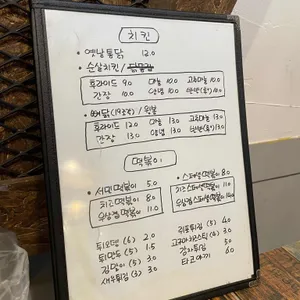 치킨
옛날통닭 12.0
순살치킨 /
후라이드 9.0 마늘 10.0 고추마늘 10.0
간장 10.0 양념 10.0 반반(후/) 10.0
뼈닭(19조각) / 윙봉
후라이드 12.0 마늘 13.0 고추마늘 13.0
간장 13.0 양념 13.0 반반(후/) 13.0
떡볶이
시리떡볶이 5.0
치즈떡볶이 8.0
우삼겹떡볶이 11.0
스페셜떡볶이 8.0
치즈스페셜떡볶이 11.0
우삼겹스페셜떡볶이 14.0
(6) 2.0
튀만두 (5) 1.5
김말이 (5) 3.0
새우튀김 (3) 3.0
(5) 4.0
고구마치즈스틱 (4) 3.0
감자튀김 5.0
타코야끼 6.0